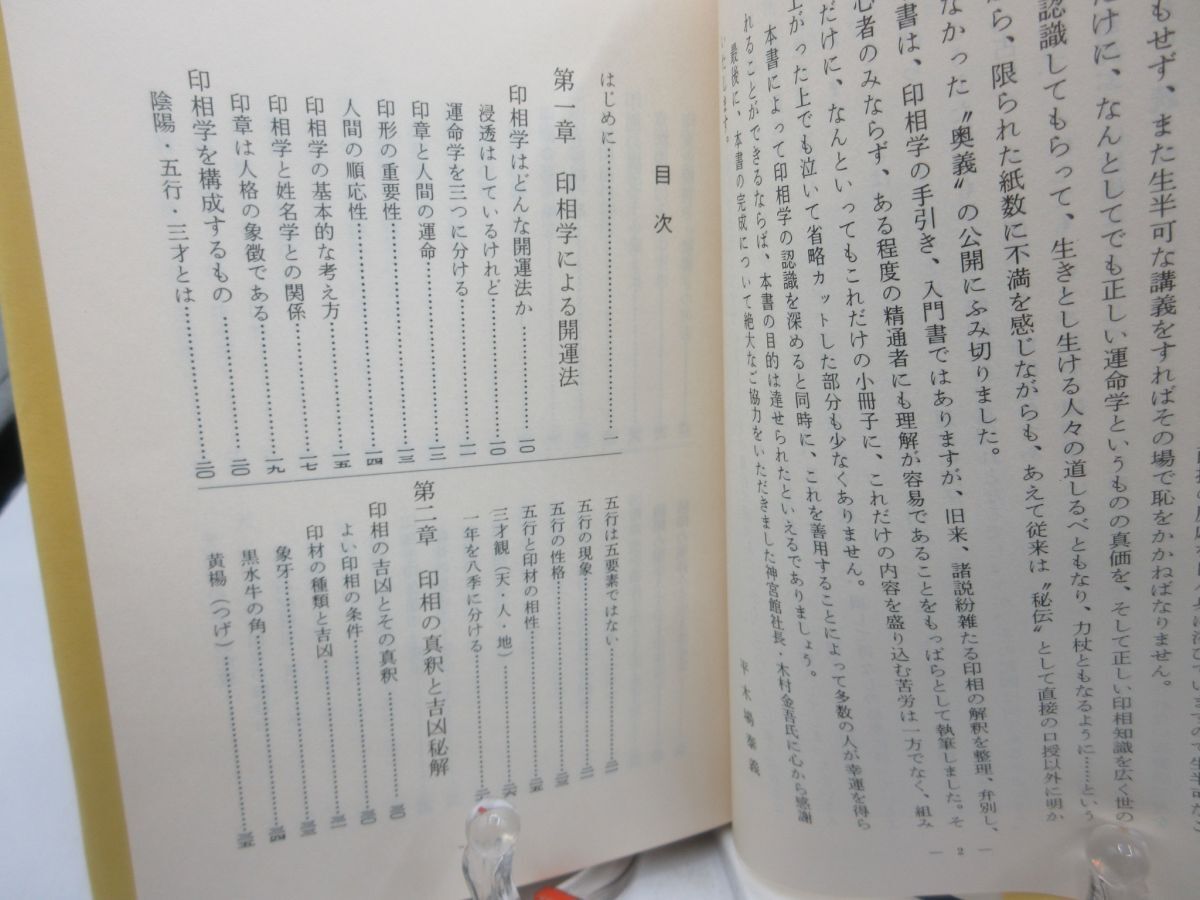 もせず、また生半可な講義をすればその場で恥をかかねばなりません。
だけに、なんとしてでも正しい運命学というものの真価を、そして正しい印相知識を広く世の
認識してもらって、生きとし生ける人々の道しるべともなり、力杖ともなるように……という
ら、限られた紙数に不満を感じながらも、あえて従来は〝秘伝〟として直接の口授以外に明か
なかった〝奥義〟の公開にふみ切りました。
書は、印相学の手引き、入門書ではありますが、旧来、諸説紛雑たる印相の解釈を整理、弁別し、
心者のみならず、ある程度の精通者にも理解が容易であることをもっぱらとして執筆しました。そ
だけに、なんといってもこれだけの小冊子に、これだけの内容を盛り込む苦労は一方でなく、組み
上がった上でも泣いて省略カットした部分も少なくありません。
本書によって印相学の認識を深めると同時に、これを善用することによって多数の人が幸運を得ら
れることができるならば、本書の目的は達せられたといえるでありましょう。
最後に、本書の完成について絶大なご協力をいただきました神宮館社長・木村金吾氏に心から感謝
いたします。
— 2 —
目次
はじめに……一
第一章 印相学による開運法
印相学はどんな開運法か……一〇
浸透はしているけれど……一〇
運命学を三つに分ける……一一
印章と人間の運命……一三
印形の重要性……一三
人間の順応性……一四
印相学の基本的な考え方……一五
印相学と姓名学との関係……一七
印章は人格の象徴である……一九
印相学を構成するもの……二〇
陰陽・五行・三才とは……二〇
五行は五要素ではない……二一
五行の現象……二一
五行の性格……二三
五行と印材の相性……二五
三才観(天・人・地)……二六
一年を八季に分ける
第二章 印相の真釈と吉凶秘解
印相の吉凶とその真釈……三〇
よい印相の条件……三〇
印材の種類と吉凶……三一
象牙……三三
黒水牛の角……三四
黄楊(つげ)……三五